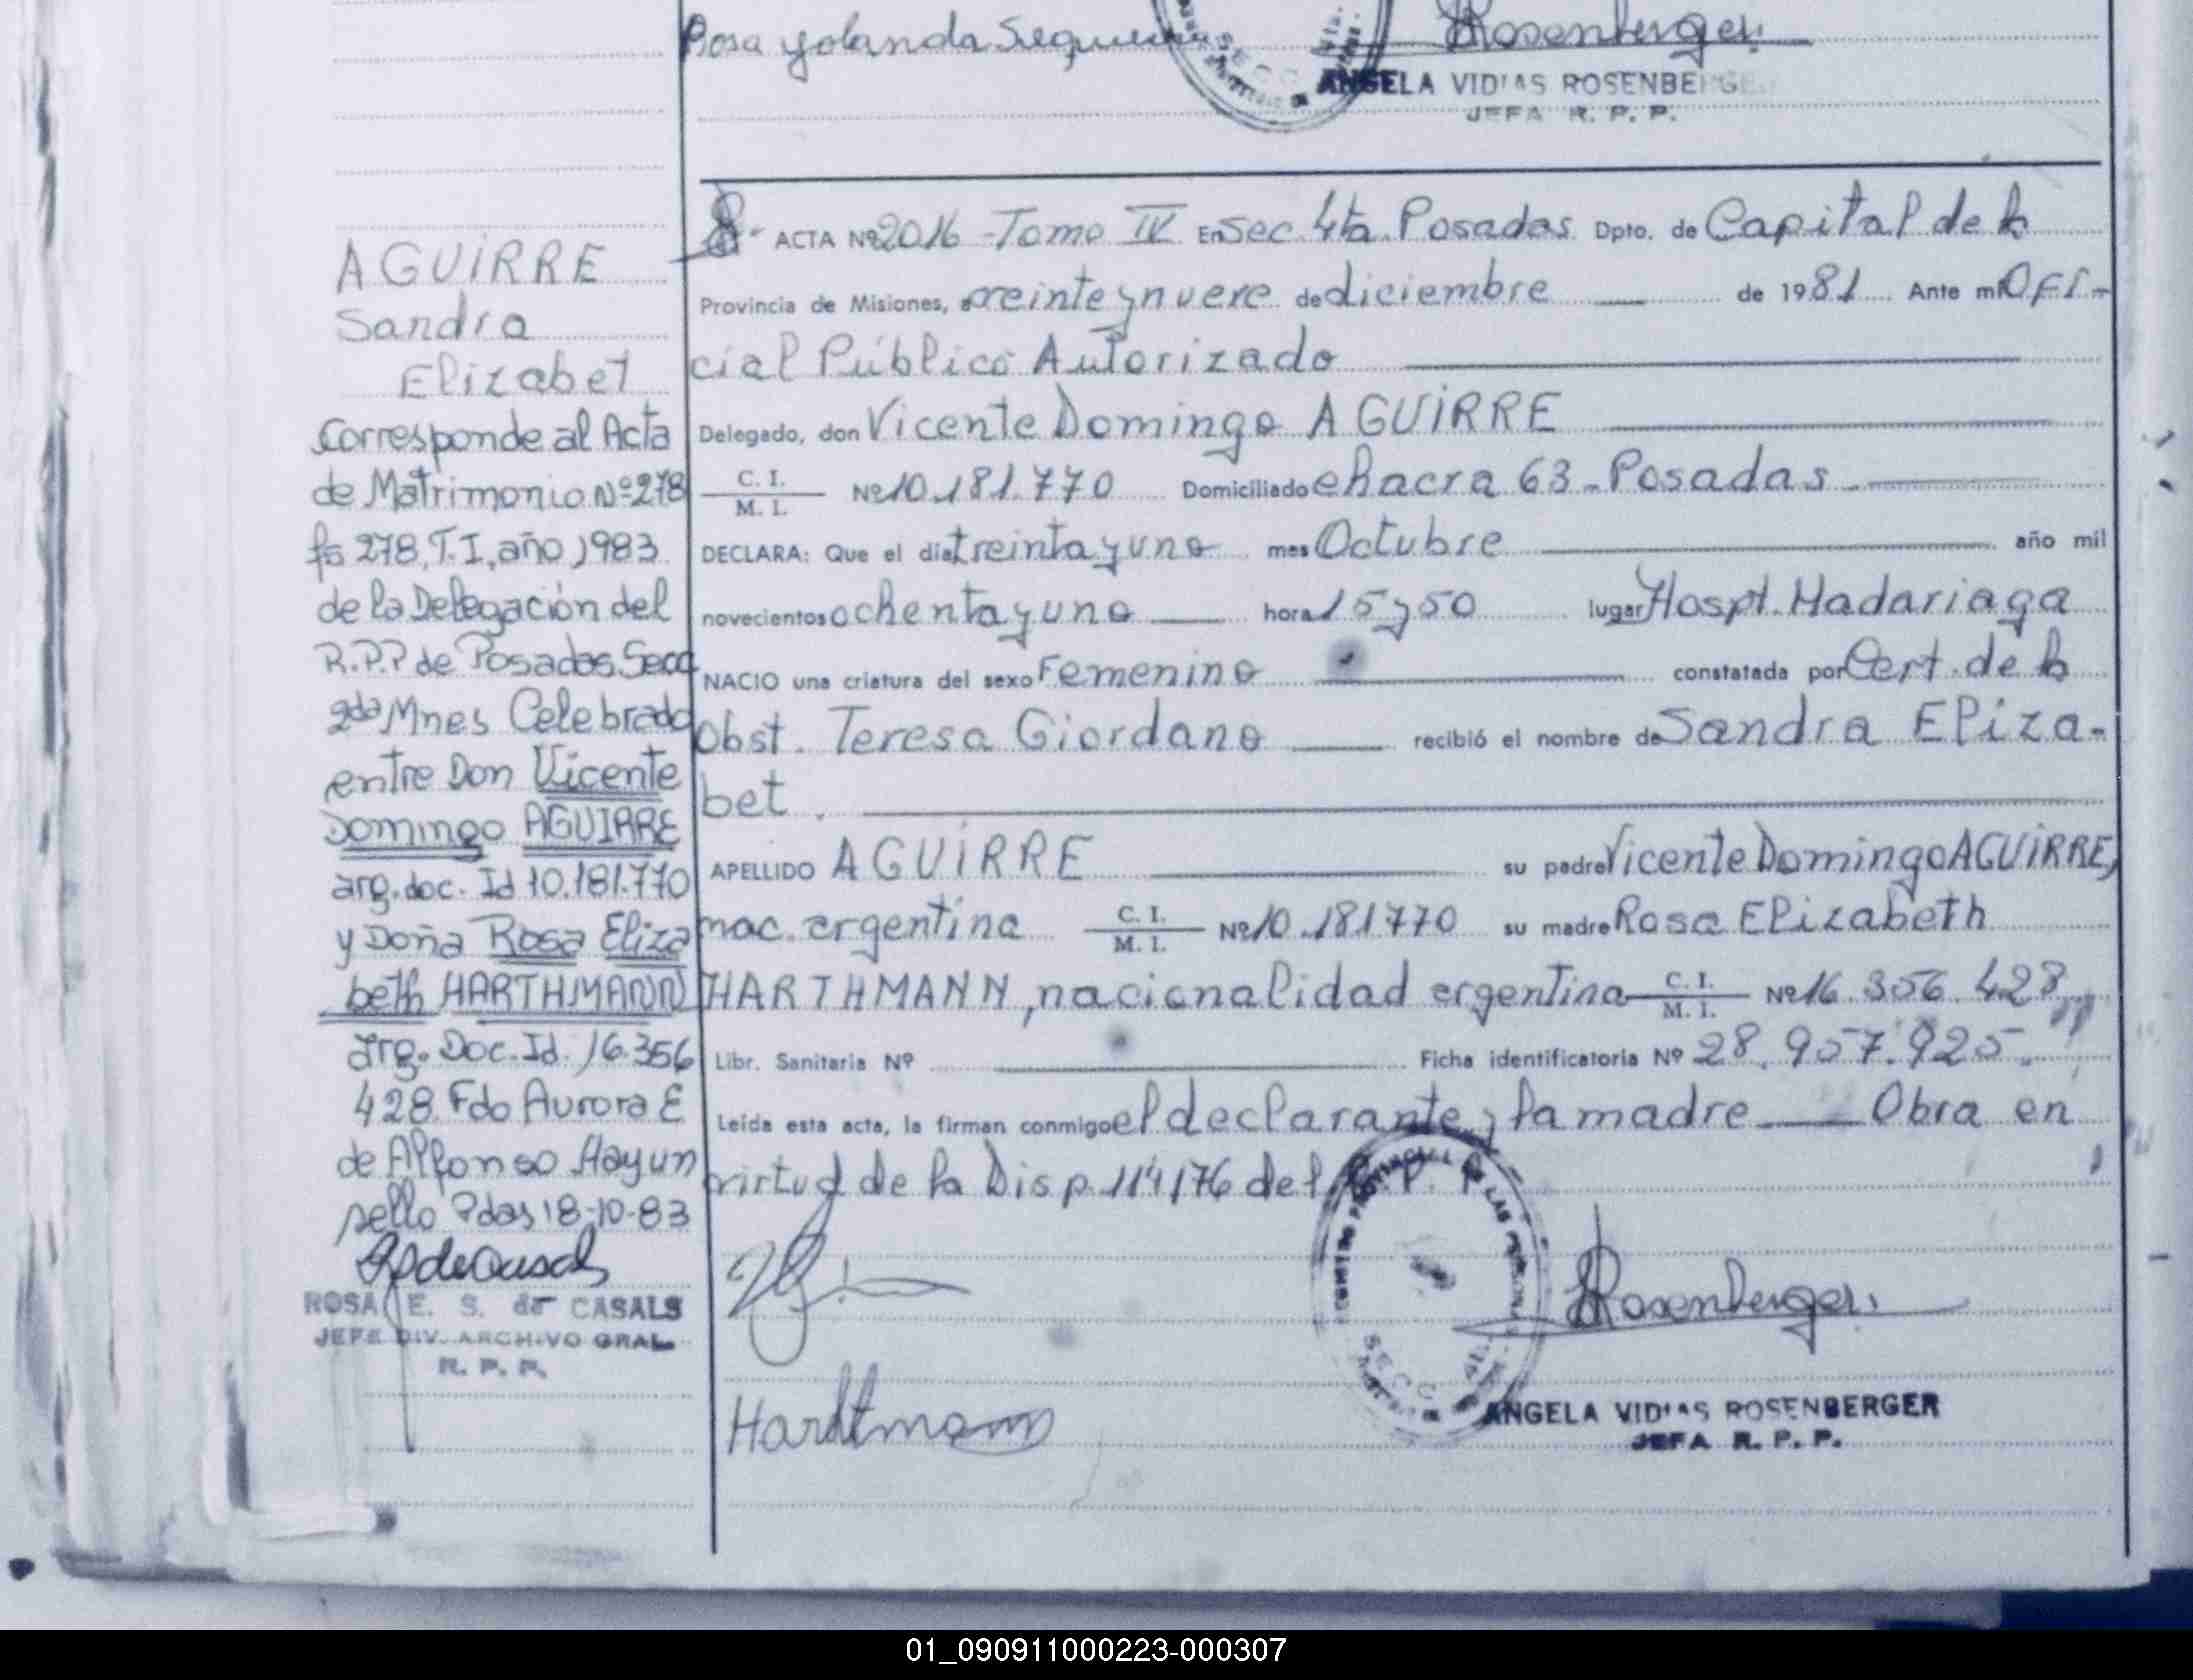 Rosa Yolanda Sequeira
Rosenberger
ANGELA VIDIAS ROSENBERGER
JEFA R. P. P.
AGUIRRE
Sandra
Elizabet
Corresponde al Acta
de Matrimonio Nº 278
fº 278, T. I, año 1983
de la Delegación del
R.P.P de Posadas Secc
2da Mnes Celebrado
entre Don Vicente
Domingo AGUIRRE
arg. doc. Id 10.181.770
y Doña Rosa Eliza
beth HARTHMANN
arg. Doc. Id. 16.356
428. Fdo Aurora E
de Alfonso Hay un
sello Pdas 18-10-83
ROSA E. S. de CASALS
JEFE DIV. ARCHIVO GRAL.
R. P. P.
ACTA Nº 2016 - Tomo IV En Sec. 4ta. Posadas Dpto. de Capital de la
Provincia de Misiones, a treinte y nueve de diciembre de 1981 Ante mi Ofi-
cial Público Autorizado
Delegado, don Vicente Domingo AGUIRRE
C. I. / M. I. Nº 10.181.770 Domiciliado chacra 63 - Posadas
DECLARA: Que el dia treinta y uno mes Octubre año mil
novecientos ochenta y uno hora 15 y 50 lugar Hospt. Madariaga
NACIO una criatura del sexo Femenino constatada por Cert. de la
Obst. Teresa Giordano recibió el nombre de Sandra Eliza-
bet.
APELLIDO AGUIRRE su padre Vicente Domingo AGUIRRE,
nac. argentina C. I. / M. I. Nº 10.181770 su madre Rosa Elizabeth
HARTHMANN, nacionalidad argentina C. I. / M. I. Nº 16.356.428
Libr. Sanitaria Nº Ficha identificatoria Nº 28.957.925.
Leída esta acta, la firman conmigo el declarante y la madre Obra en
virtud de la Disp. 114/76 del R. P. P.
Rosenberger
Hardtmann
ANGELA VIDIAS ROSENBERGER
JEFA R. P. P.
01_090911000223-000307